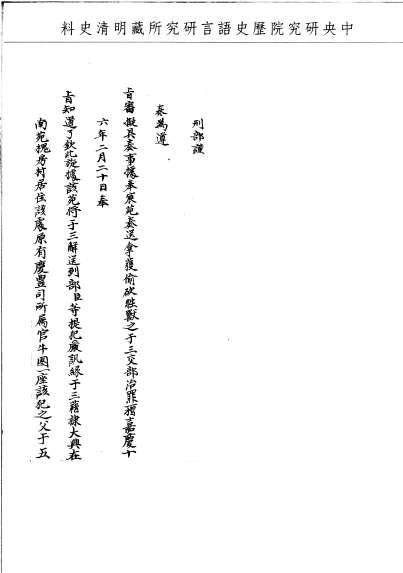 中央研究院歷史語言研究所藏明清史料
刑部謹
奏為遵
旨審擬具奏事據奉宸苑奏送拿獲偷砍牲獸之于三交部治罪摺嘉慶十
六年二月二十日奉
旨知道了欽此旋據該苑將于三解送刑部臣等提犯嚴訊緣于三籍隸大興在
南苑槐房村居住該處原有慶豐司所屬官牛圈一座該犯之父于五